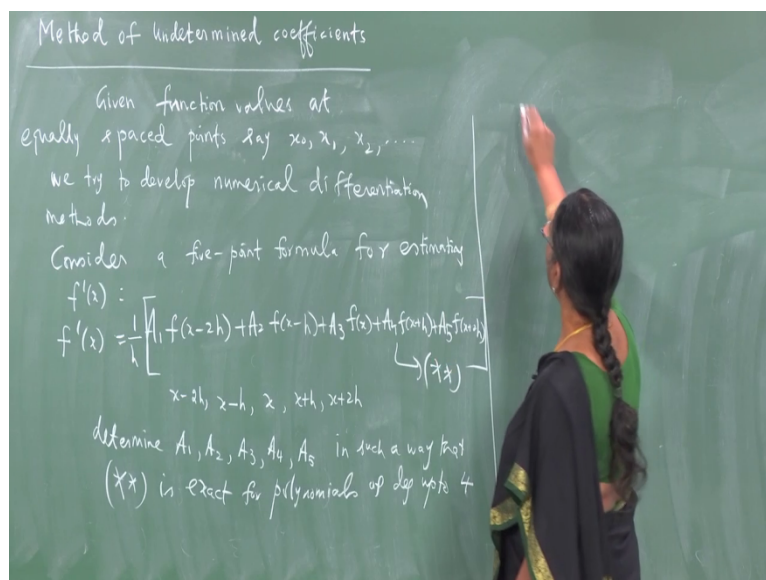 Method of undetermined coefficients
Given function values at
equally spaced points say x₀, x₁, x₂, ....
we try to develop numerical differentiation
methods.
Consider a five-point formula for estimating
f'(x) :
f'(x) = 1/h [A₁ f(x-2h) + A₂ f(x-h) + A₃ f(x) + A₄ f(x+h) + A₅ f(x+2h)]
↳ (**)
x-2h, x-h, x, x+h, x+2h
determine A₁, A₂, A₃, A₄, A₅ in such a way that
(**) is exact for polynomials of deg upto 4